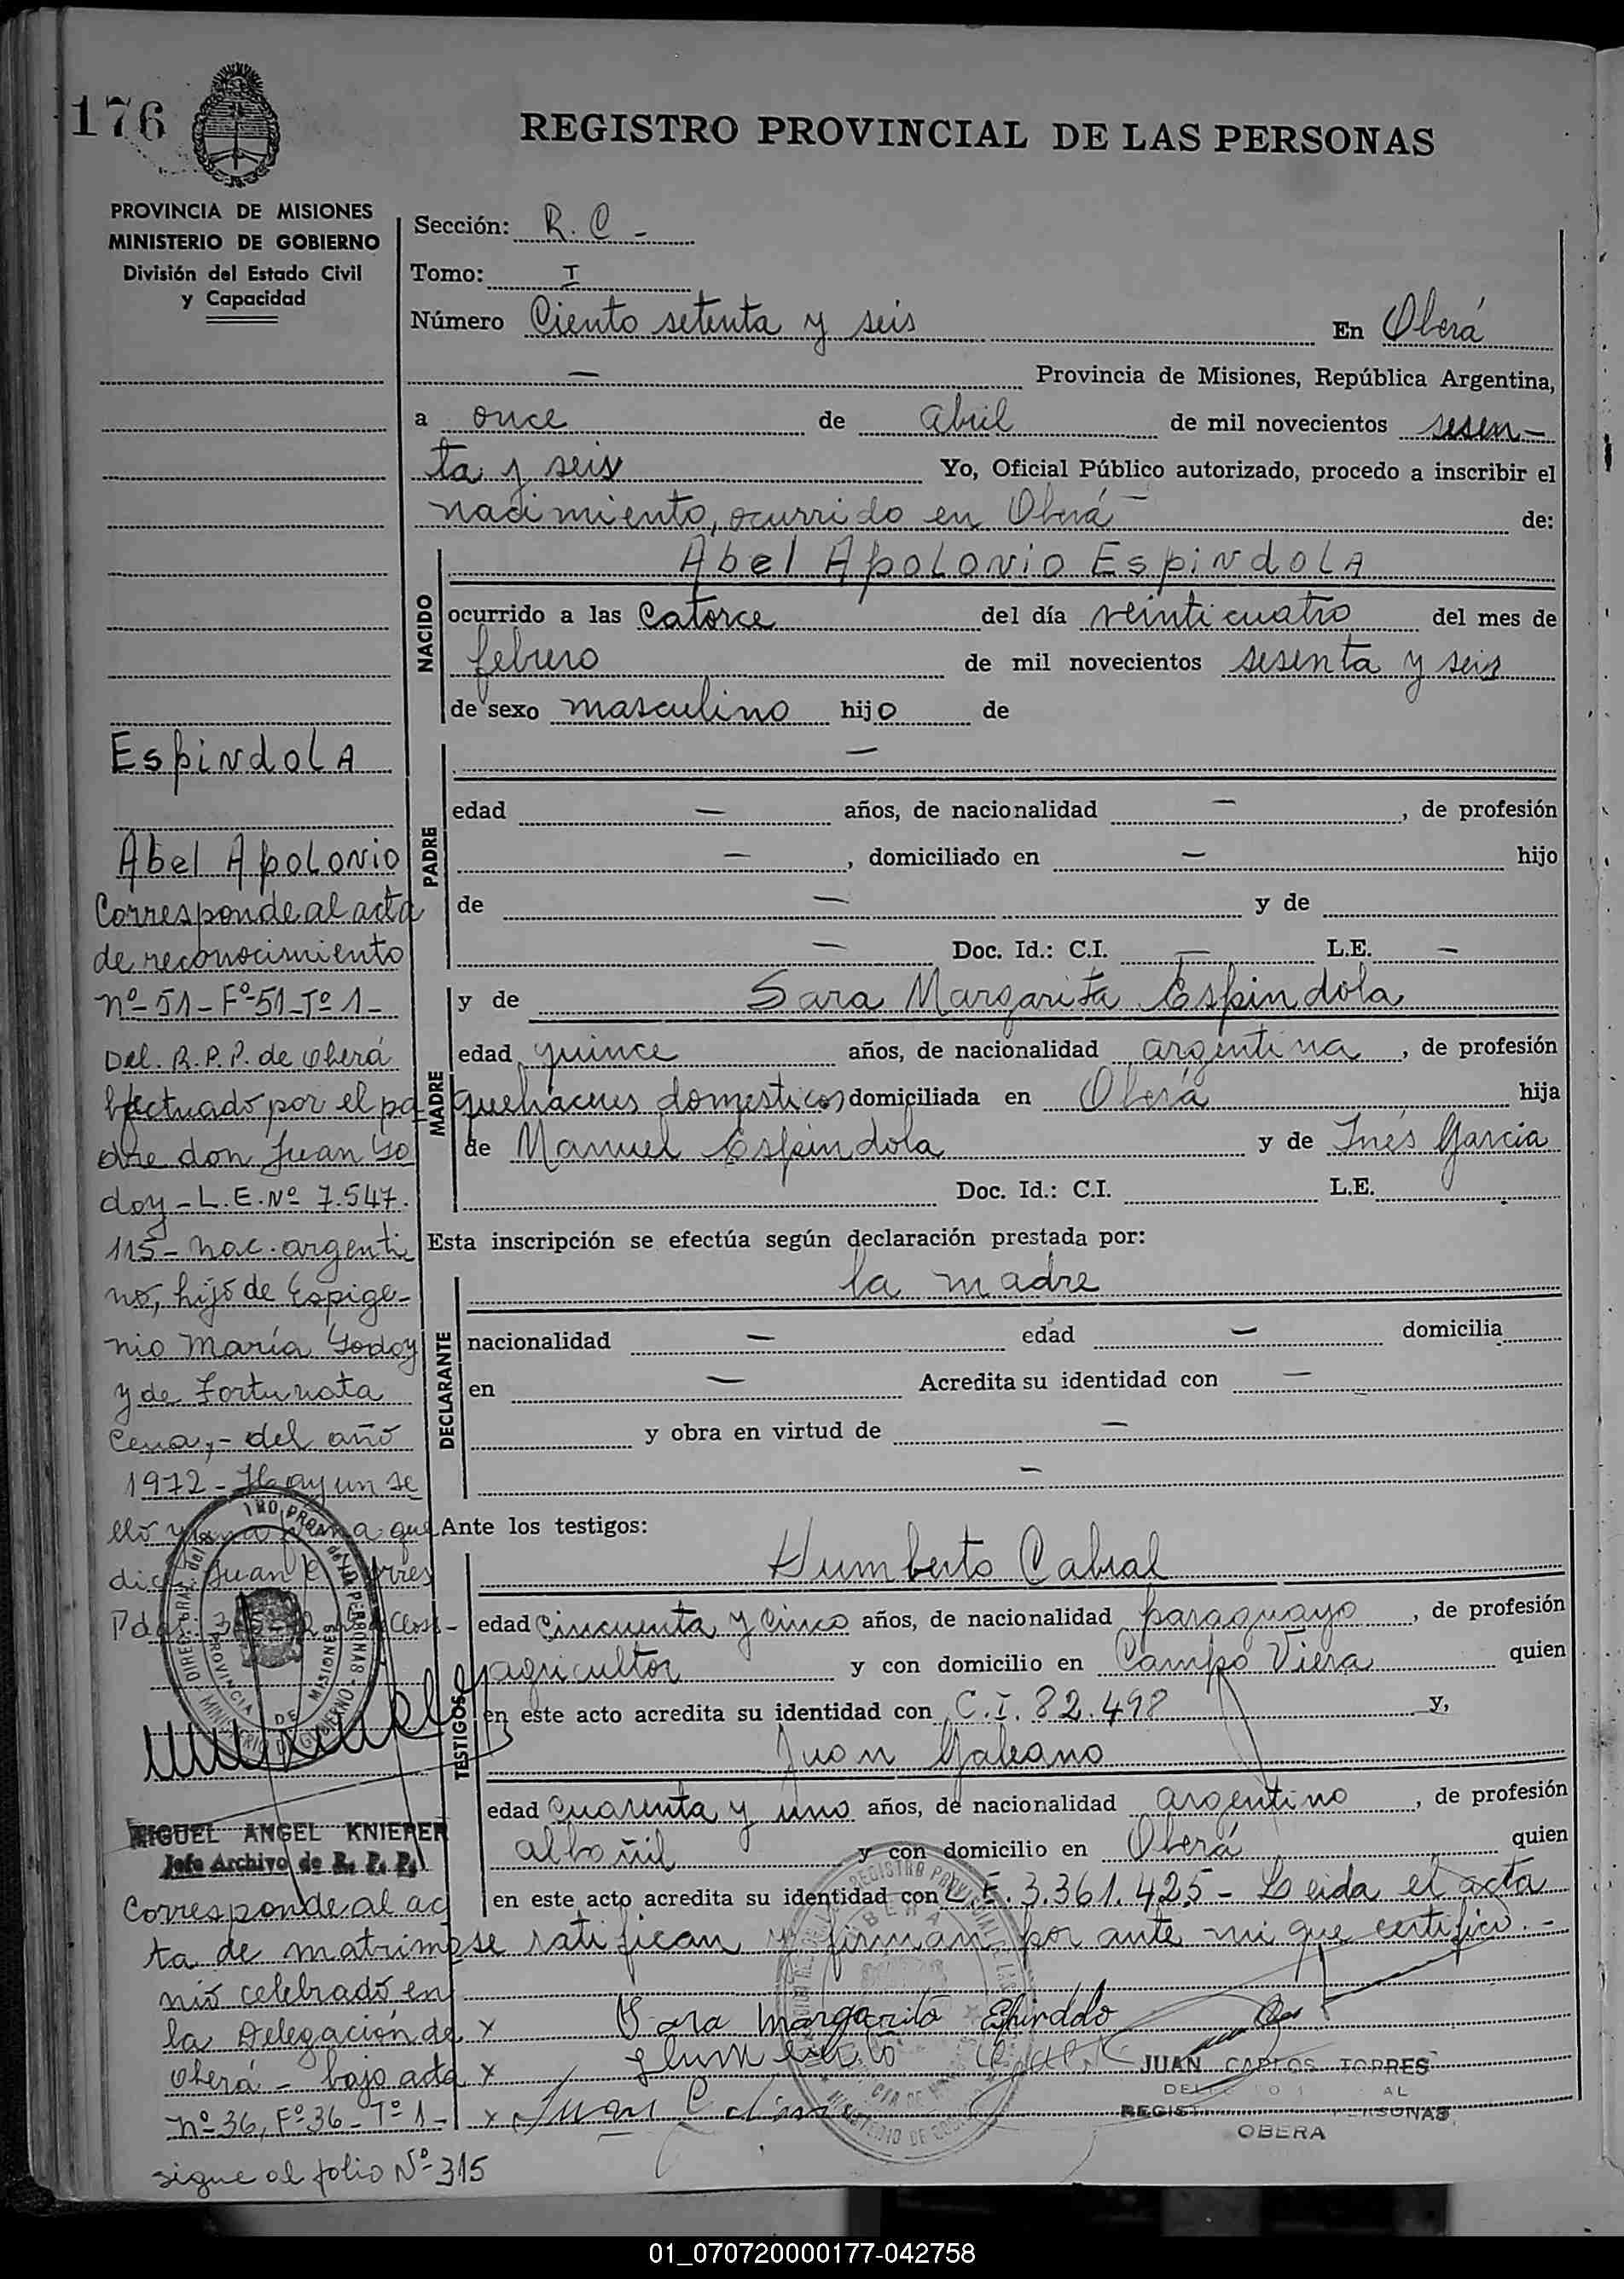 176
REGISTRO PROVINCIAL DE LAS PERSONAS
PROVINCIA DE MISIONES
MINISTERIO DE GOBIERNO
División del Estado Civil
y Capacidad
Sección: R. C -
Tomo: I
Número Ciento setenta y seis En Oberá
— Provincia de Misiones, República Argentina,
a once de abril de mil novecientos sesen-
ta y seis Yo, Oficial Público autorizado, procedo a inscribir el
nacimiento, ocurrido en Oberá — de:
NACIDO
Abel Apolonio Espindola
ocurrido a las Catorce del día veinticuatro del mes de
febrero de mil novecientos sesenta y seis
de sexo masculino hijo de
PADRE
—
edad — años, de nacionalidad — , de profesión
— , domiciliado en — hijo
de — y de
— Doc. Id.: C.I. — L.E. —
MADRE
y de Sara Margarita Espindola
edad quince años, de nacionalidad argentina , de profesión
quehaceres domesticos domiciliada en Oberá hija
de Manuel Espindola y de Inés Garcia
Doc. Id.: C.I. L.E.
Esta inscripción se efectúa según declaración prestada por:
DECLARANTE
la madre
nacionalidad — edad — domicilia
en — Acredita su identidad con —
y obra en virtud de —
—
Ante los testigos:
TESTIGOS
Humberto Cabral
edad Cincuenta y Cinco años, de nacionalidad paraguayo , de profesión
agricultor y con domicilio en Campo Viera quien
en este acto acredita su identidad con C.I. 82.498 y,
Juan Galeano
edad Cuarenta y uno años, de nacionalidad argentino , de profesión
albañil y con domicilio en Oberá quien
en este acto acredita su identidad con L.E. 3.361.425 - Leida el acta
se ratifican y firman por ante mi que certifico. -
x Sara Margarita Espindola
x
x Juan
JUAN CARLOS TORRES
OBERA
Espindola
Abel Apolonio
Corresponde al acta
de reconocimiento
nº-51-Fº-51-Tº 1-
Del. R.P.P. de Oberá
Efectuado por el pa
dre don Juan Go
doy - L.E. Nº 7.547.
115 - nac. argenti
no, hijo de Espige-
nio María Godoy
y de Fortunata
Cena, - del año
1972 - Hay un se
llo y una firma que
dice Juan C. Torres
MIGUEL ANGEL KNIEPER
Jefe Archivo de R. P. P.
Corresponde al ac
ta de matrimo
nio celebrado en
la Delegación de
Oberá - bajo acta
nº 36, Fº 36 - Tº 1 -
sigue al folio Nº 315
01_070720000177-042758